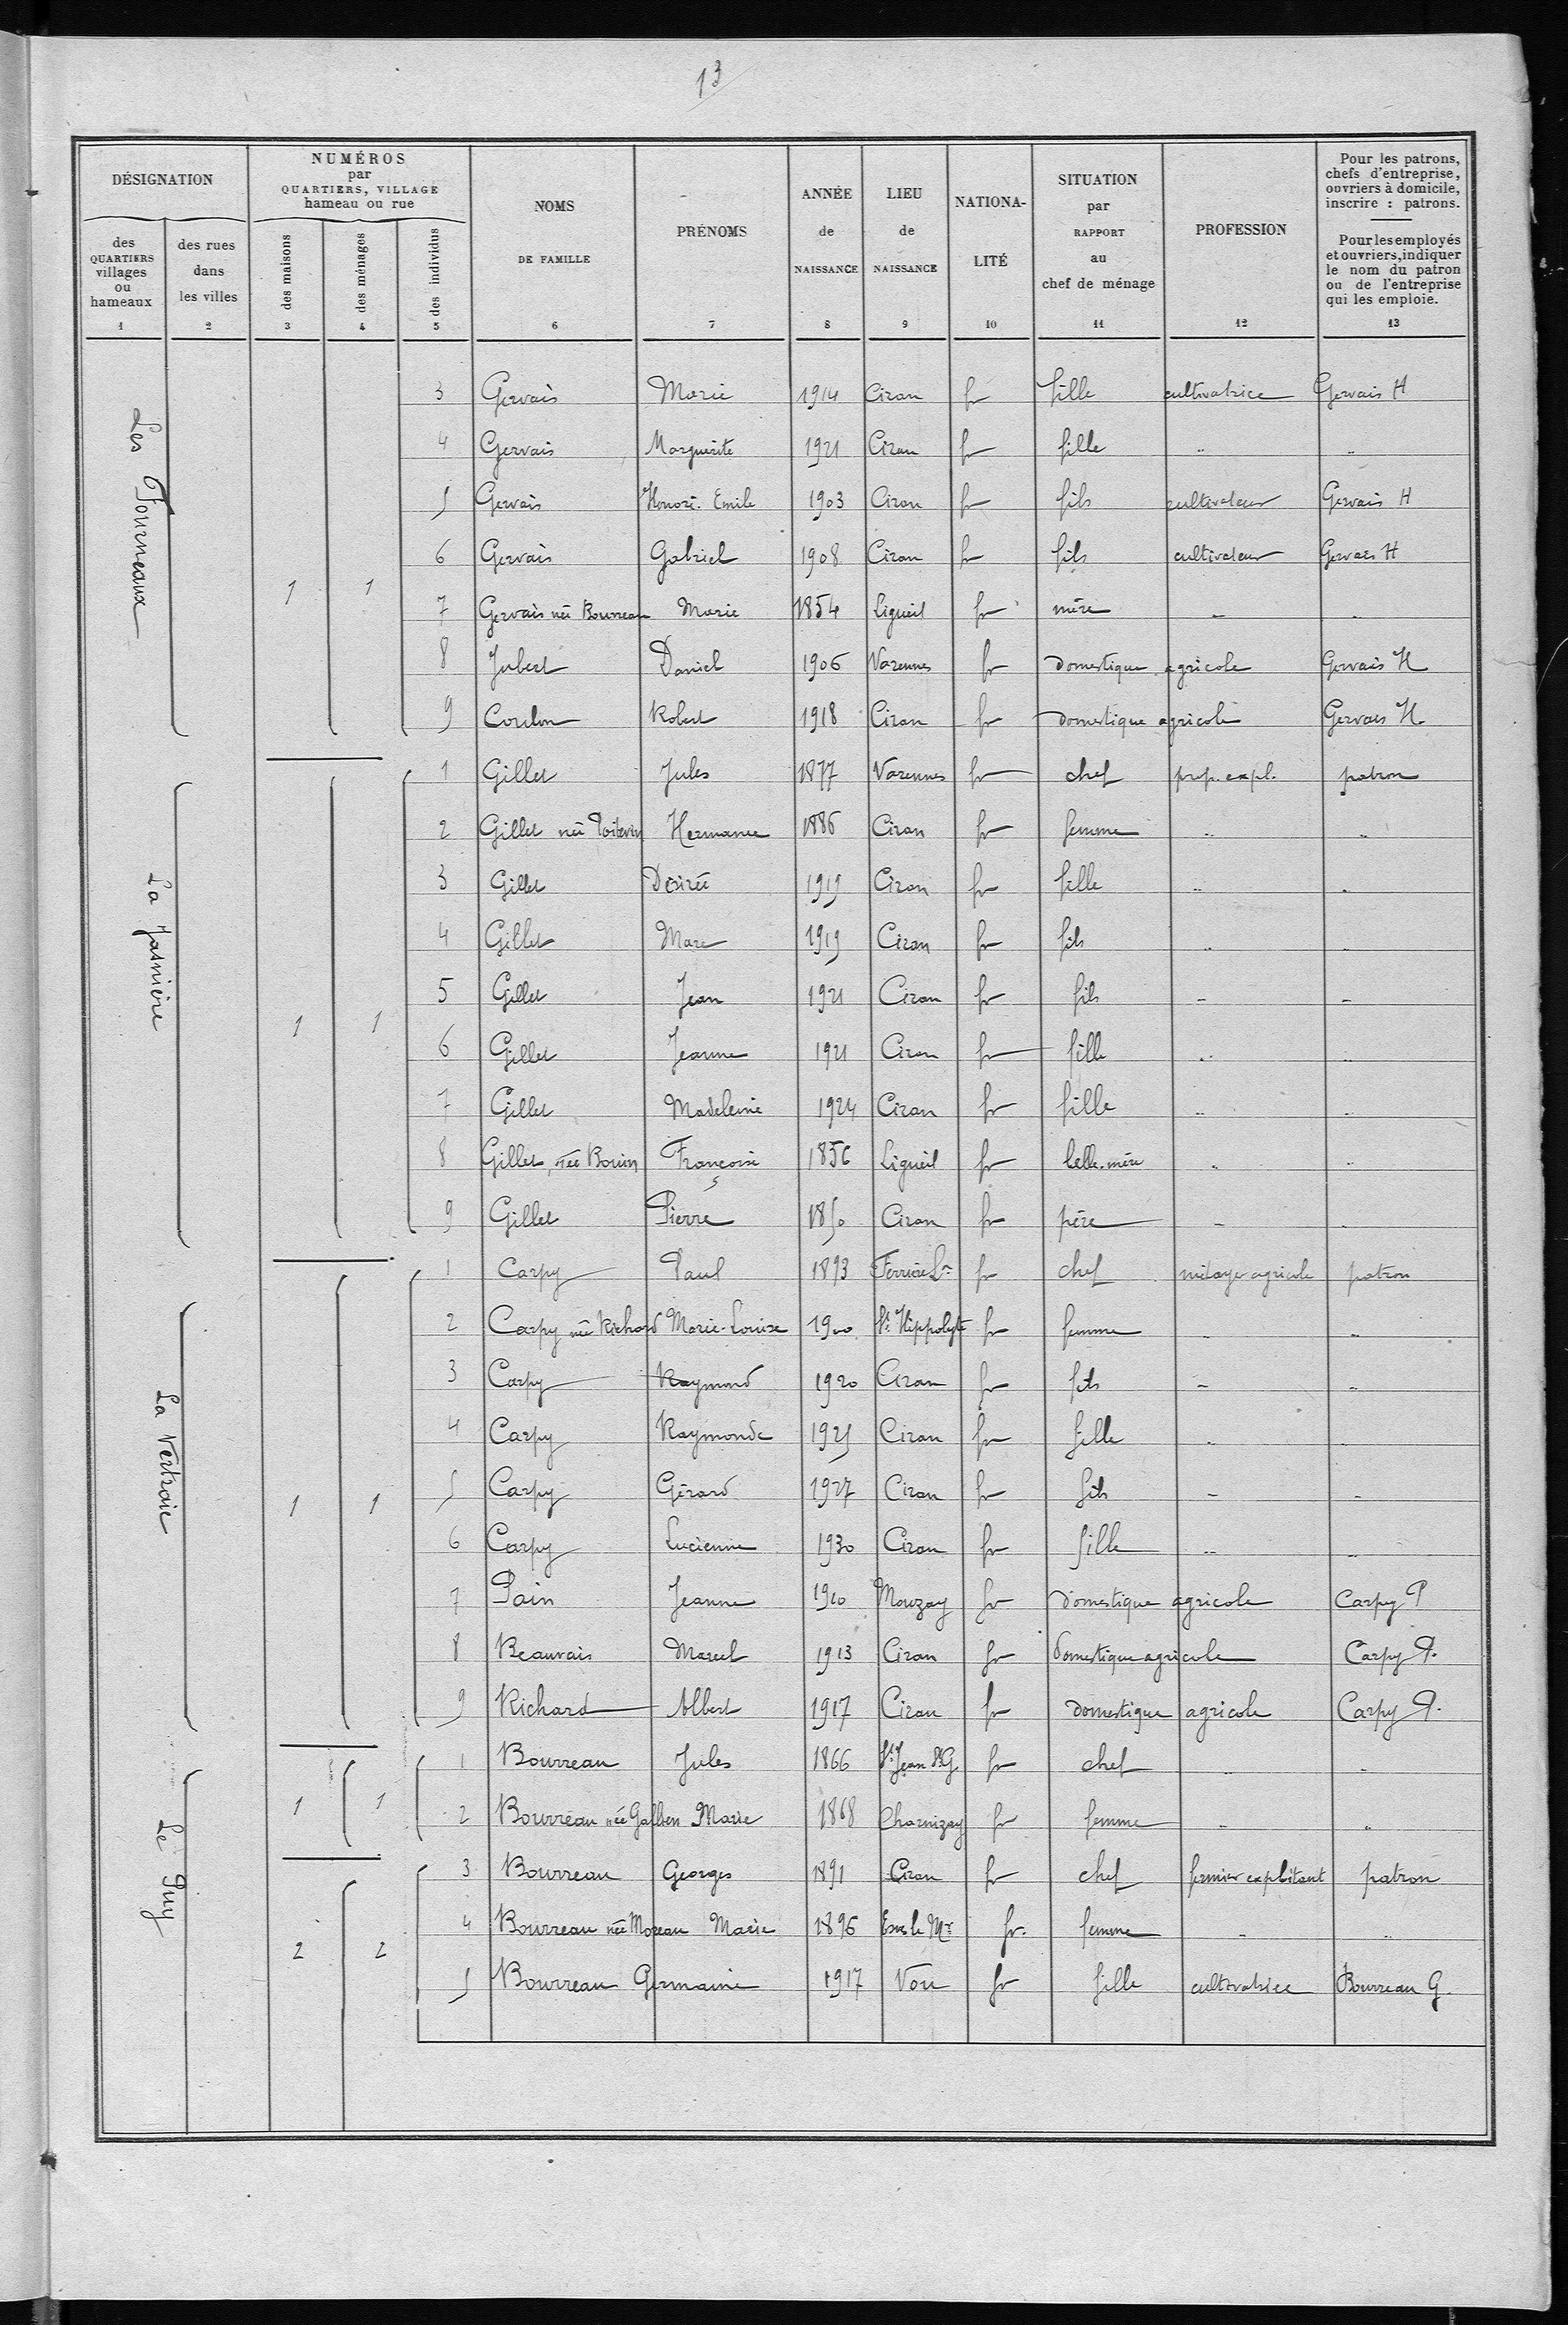 13
DÉSIGNATION
NUMÉROS
par
QUARTIERS, VILLAGE
hameau ou rue
NOMS
DE FAMILLE
PRÉNOMS
ANNÉE
de
NAISSANCE
LIEU
de
NAISSANCE
NATIONA-
LITÉ
SITUATION
par
RAPPORT
au
chef de ménage
PROFESSION
Pour les patrons,
chefs d'entreprise,
ouvriers à domicile,
inscrire : patrons.
Pour les employés
et ouvriers, indiquer
le nom du patron
ou de l'entreprise
qui les emploie.
des
QUARTIERS
villages
ou
hameaux
des rues
dans
les villes
des maisons
des ménages
des individus
1 2 3 4 5 6 7 8 9 10 11 12 13
Les Fourneaux
1 1
3 Gervais Marie 1914 Ciran fr fille cultivatrice Gervais H
4 Gervais Marguerite 1921 Ciran fr fille " "
5 Gervais Honoré-Emile 1903 Ciran fr fils cultivateur Gervais H
6 Gervais Gabriel 1908 Ciran fr fils cultivateur Gervais H
7 Gervais née Bourreau Marie 1854 Ligueil fr mère " "
8 Jubert Daniel 1906 Varennes fr domestique agricole Gervais H
9 Coulon Robert 1918 Ciran fr domestique agricole Gervais H
La Jasnière
1 1
1 Gillet Jules 1877 Varennes fr chef prop. expl. patron
2 Gillet née Poitevin Hermance 1886 Ciran fr femme " "
3 Gillet Désirée 1915 Ciran fr fille " "
4 Gillet Marc 1919 Ciran fr fils " "
5 Gillet Jean 1921 Ciran fr fils " "
6 Gillet Jeanne 1921 Ciran fr fille " "
7 Gillet Madeleine 1924 Ciran fr fille " "
8 Gillet, née Bouin Françoise 1856 Ligueil fr belle-mère " "
9 Gillet Pierre 1850 Ciran fr père " "
La Vertraie
1 1
1 Carpy Paul 1893 Ferrière Lon fr chef métayer agricole patron
2 Carpy née Richard Marie-Louise 1900 St Hippolyte fr femme " "
3 Carpy Raymond 1920 Ciran fr fils " "
4 Carpy Raymonde 1925 Ciran fr fille " "
5 Carpy Gérard 1927 Ciran fr fils " "
6 Carpy Lucienne 1930 Ciran fr fille " "
7 Pain Jeanne 1910 Mouzay fr domestique agricole Carpy P
8 Beauvais Marcel 1913 Ciran fr domestique agricole Carpy P.
9 Richard Albert 1917 Ciran fr domestique agricole Carpy P.
Le Puy
1 1
1 Bourreau Jules 1866 St Jean St G fr chef " "
2 Bourreau née Gallien Marie 1868 Charnizay fr femme " "
2 2
3 Bourreau Georges 1891 Ciran fr chef fermier exploitant patron
4 Bourreau née Moreau Marie 1896 Esves le Mr fr. femme " "
5 Bourreau Germaine 1917 Vou fr fille cultivatrice Bourreau G.